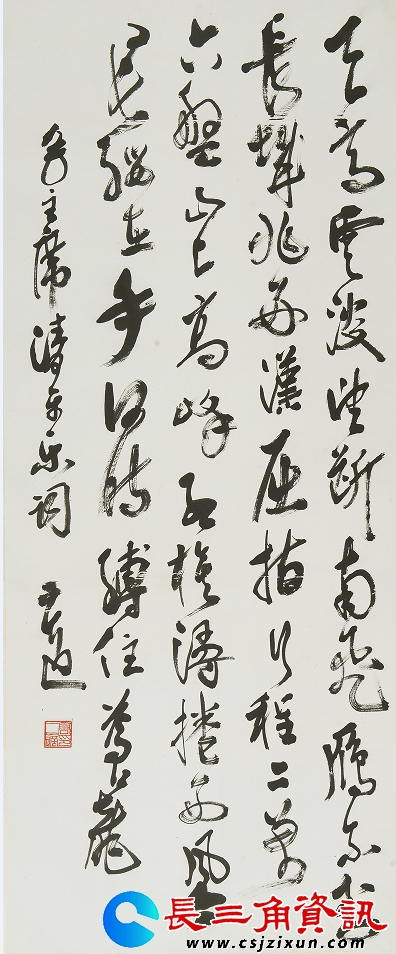 天高雲淡望断南飛鴈不到
長城非好漢屈指行程二萬
六盤山上高峰红旗漫捲西風
纓在手何时縛住蒼龍
毛主席清平乐词
長三角資訊
www.csjzixun.com